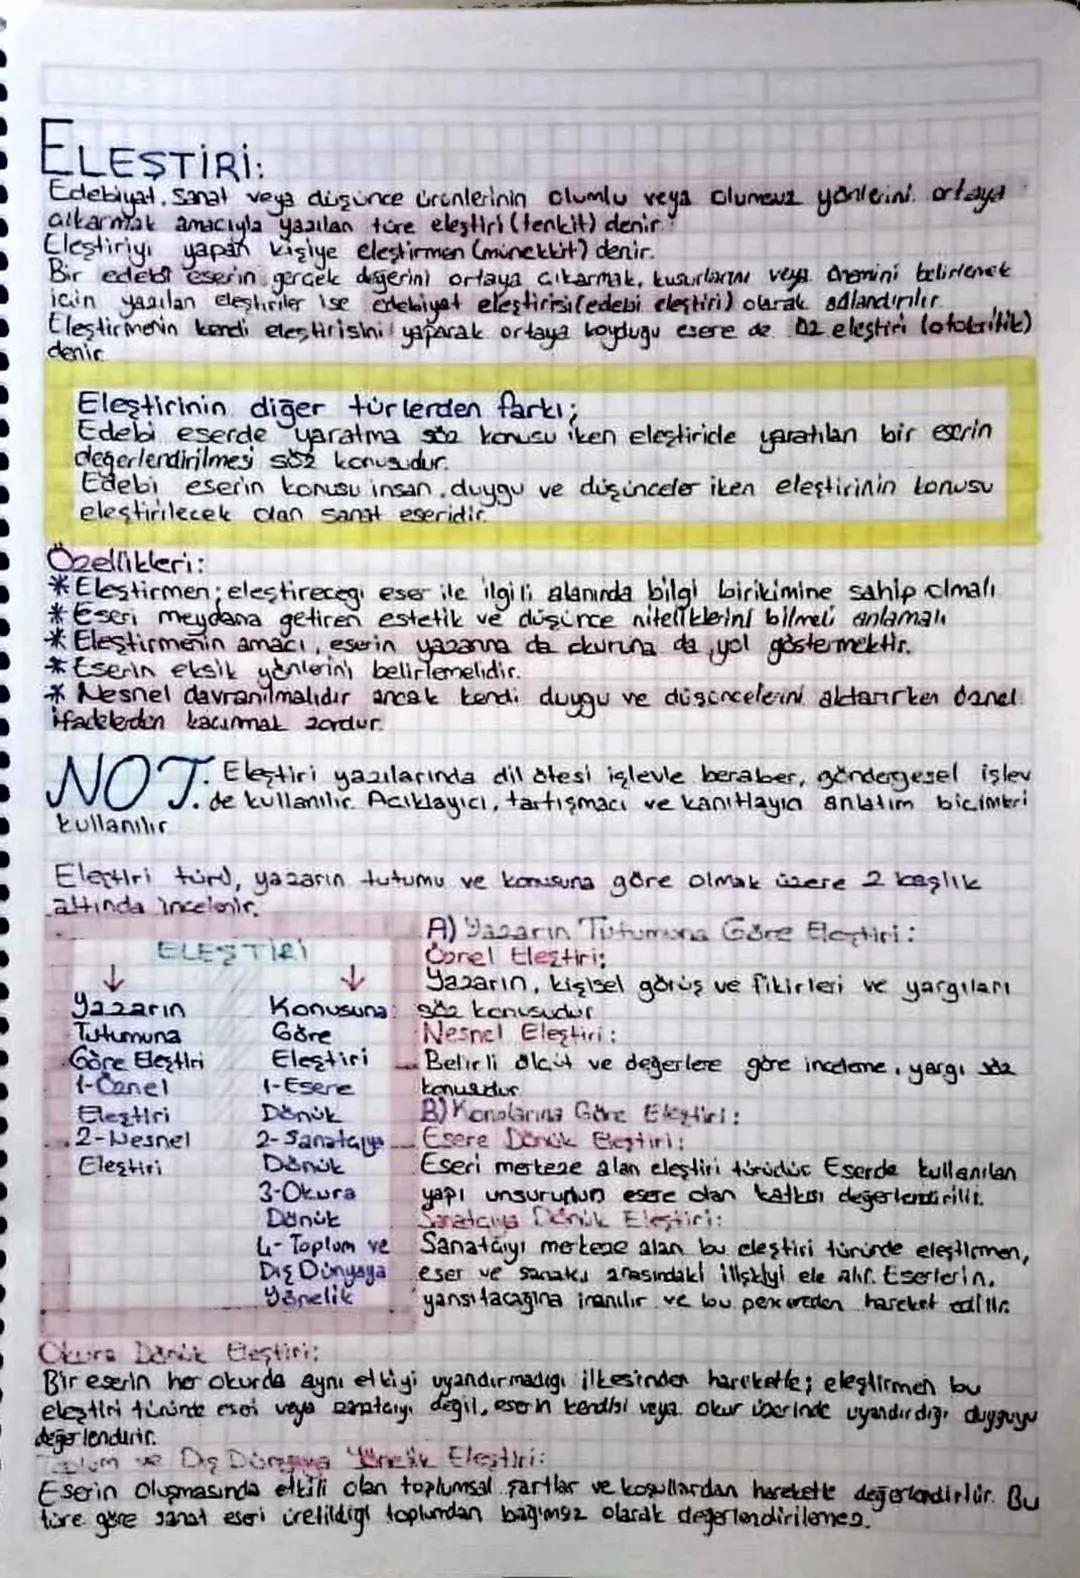 ELEŞTİRİ:
Edebiyat, sanat veya düşünce ürünlerinin olumlu veya olumsuz yönlerini ortaya
çıkarmak amacıyla yazılan türe eleştiri (tenkit) denir.
Eleştiriyi yapan kişiye eleştirmen (münekkit) denir.
Bir edebi eserin gerçek değerini ortaya çıkarmak, kusurlarını veya önemini belirlemek
için yazılan eleştiriler ise edebiyat eleştirisi (edebi eleştiri) olarak adlandırılır.
Eleştirmenin kendi eleştirisini yaparak ortaya koyduğu esere de öz eleştiri (otokritik)
denir
Eleştirinin diğer türlerden farkı;
Edebi eserde yaratma söz konusu iken eleştiride yaratılan bir eserin
değerlendirilmesi söz konusudur.
Edebi eserin konusu insan, duygu ve düşünceler iken eleştirinin konusu
eleştirilecek olan sanat eseridir.
Özellikleri:
* Eleştirmen; eleştireceği eser ile ilgili alanında bilgi birikimine sahip olmalı
* Eseri meydana getiren estetik ve düşünce niteliklerini bilmeli anlamalı
* Eleştirmenin amacı, eserin yazarına da okuruna da yol göstermektir.
* Eserin eksik yönlerini belirlemelidir.
* Nesnel davranılmalıdır ancak kendi duygu ve düşüncelerini aktarırken öznel
ifadelerden kaçınmak zordur.
NOT: Eleştiri yazılarında dil ötesi işlevle beraber, göndergesel işlev
de kullanılır. Açıklayıcı, tartışmacı ve kanıtlayıcı anlatım biçimleri
kullanılır
Eleştiri türü, yazarın tutumu ve konusuna göre olmak üzere 2 başlık
altında incelenir.
ELEŞTİRİ
↓ ↓
Yazarın
Tutumuna
Göre Eleştiri
1-Öznel
Eleştiri
2-Nesnel
Eleştiri
Konusuna
Göre
Eleştiri
1-Esere
Dönük
2-Sanatçıya
Dönük
3-Okura
Dönük
4-Toplum ve
Dış Dünyaya
Yönelik
A) Yazarın Tutumuna Göre Eleştiri:
Öznel Eleştiri;
Yazarın, kişisel görüş ve fikirleri ve yargıları
söz konusudur
Nesnel Eleştiri:
Belirli ölçüt ve değerlere göre inceleme, yargı söz
konusudur
B) Konularına Göre Eleştiri:
Esere Dönük Eleştiri:
Eseri merkeze alan eleştiri türüdür. Eserde kullanılan
yapı unsurunun esere olan katkısı değerlendirilir.
Sanatçıya Dönük Eleştiri:
Sanatçıyı merkeze alan bu eleştiri türünde eleştirmen,
eser ve sanatçı arasındaki ilişkiyi ele alır. Eserlerin,
yansıtacağına inanılır ve bu pencereden hareket edilir.
Okura Dönük Eleştiri:
Bir eserin her okurda aynı etkiyi uyandırmadığı ilkesinden hareketle; eleştirmen bu
eleştiri türünde eseri veya sanatçıyı değil, eserin kendisi veya okur üzerinde uyandırdığı duyguyu
değerlendirir.
Toplum ve Dış Dünyaya Yönelik Eleştiri:
Eserin oluşmasında etkili olan toplumsal şartlar ve koşullardan hareketle değerlendirilir. Bu
türe göre sanat eseri üretildiği toplumdan bağımsız olarak değerlendirilemez.